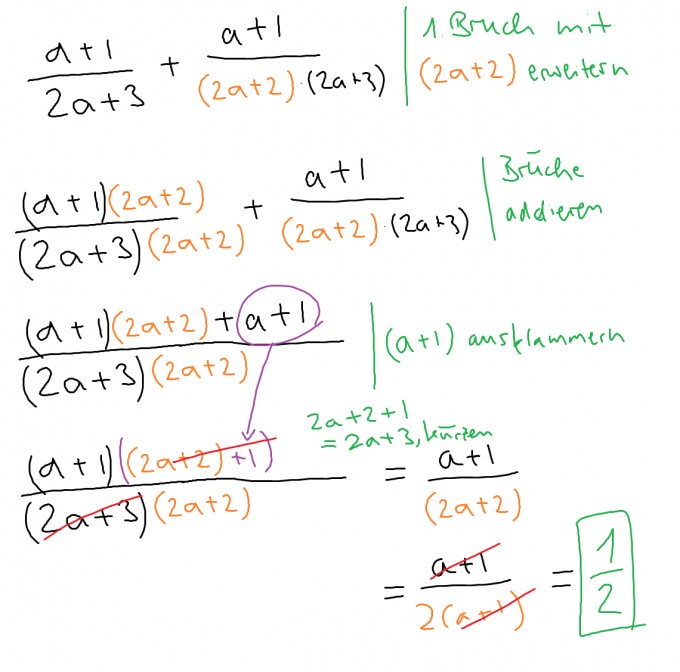 (a+1)/(2a+3) + (a+1)/((2a+2)·(2a+3)) | 1. Bruch mit
(2a+2) erweitern
((a+1)(2a+2))/((2a+3)(2a+2)) + (a+1)/((2a+2)·(2a+3)) | Brüche
addieren
((a+1)(2a+2)+a+1)/((2a+3)(2a+2)) | (a+1) ausklammern
2a+2+1
= 2a+3, kürzen
((a+1)((2a+2)+1))/((2a+3)(2a+2)) = (a+1)/(2a+2)
= (a+1)/(2(a+1)) = 1/2